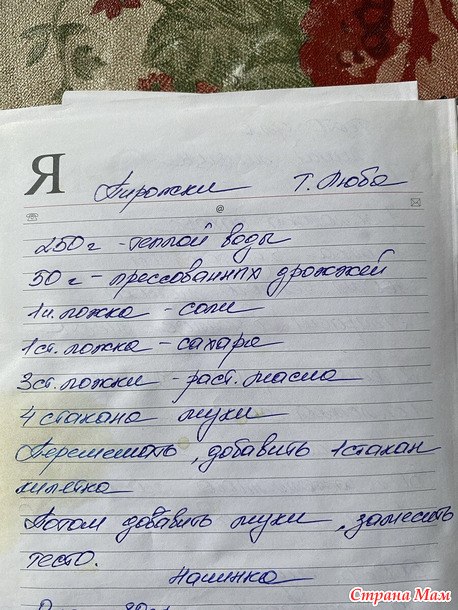 Я
Пирожки Т. Люба
@
250 г - теплой воды
50 г - прессованных дрожжей
1 ч. ложка - соли
1 ст. ложка - сахара
3 ст. ложки - раст. масла
4 стакана муки
Перемешать, добавить 1 стакан
кипятка
Потом добавить муки, замесить
тесто.
Начинка
Страна Мам